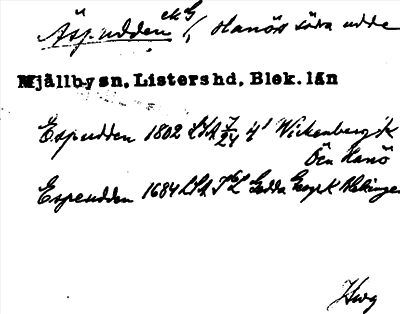 Äspudden ekG /, Hanös södra udde
Mjällby sn, Listers hd, Blek. län
Espudden 1802 LSA 7/24 4' Wickenberg K
Ön Hanö
Espeudden 1684 LSA Gedda Geogr K Blekinge